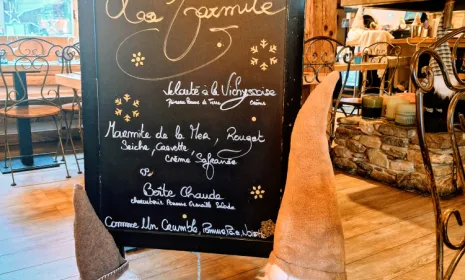 La Marmite
Velouté à la Vichyssoise
Pomme de Terre, Crème
Marmite de la Mer, Rouget
Seiche, Crevette
Crème Safranée
or
Boîte Chaude
Charcuterie Pomme Grenaille Salade
Comme Un Crumble, Pomme Poire